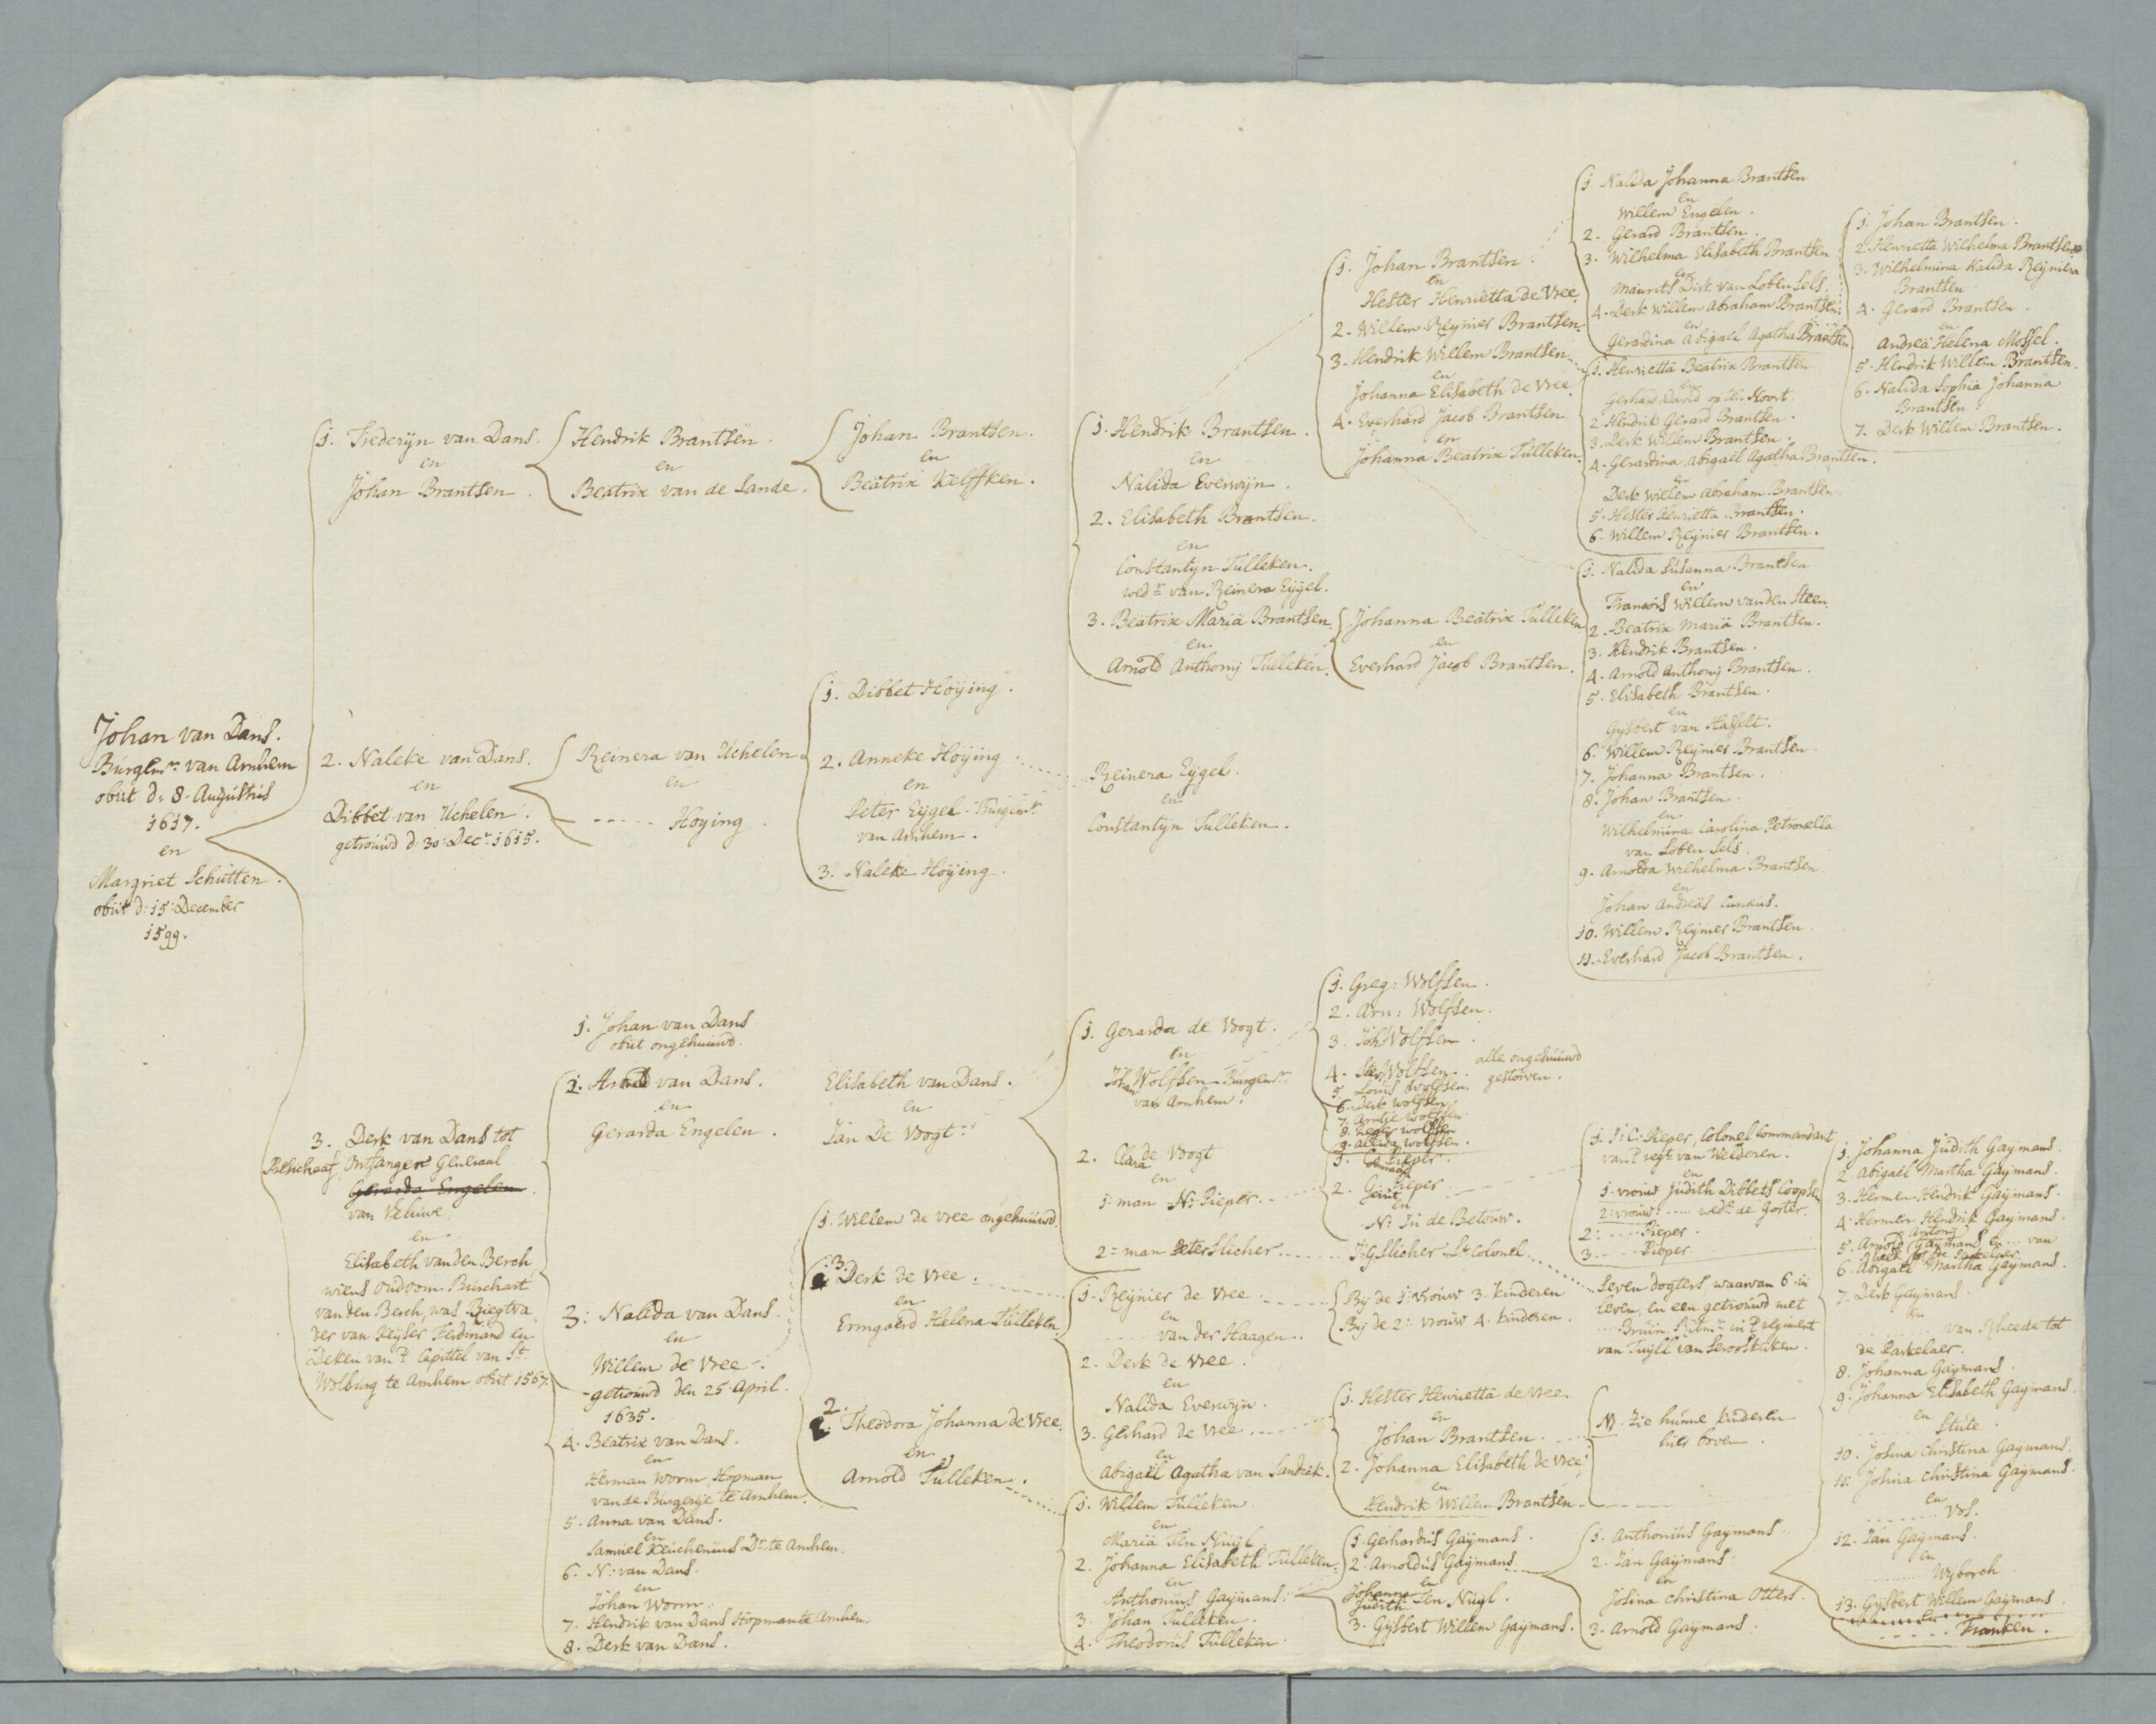 Johan van Dans.
Burgemr. van Arnhem
obiit d: 8. Augustus
1617.
en
Margriet Schutten.
obiit d: 15: December
1599.
1. Frederijn van Dans.
en
Johan Brantsen.
2. Naleke van Dans.
en
Dibbet van Uchelen.
getrouwd d: 30: Decr. 1615.
3. Derk van Dans tot
Ontfanger Generaal
Gerarda Engelen
van Veluwe,
en
Elisabeth van den Berch
wiens oudoom Burchart
van den Berch, was Biegtva
der van Keyser Ferdinand en
Deken van 't Capittel van St.
Wolburg te Arnhem obiit 1567.
Hendrik Brantsen.
en
Beatrix van de Sande.
Reinera van Uchelen
en
Hoying.
1. Johan van Dans
obiit ongehuuwd.
2. Arnold van Dans.
en
Gerarda Engelen.
3: Nalida van Dans.
en
Willem de Vree.
getrouwd den 25 April.
1635.
4. Beatrix van Dans.
en
Herman Worm, Hopman
van de Burgerije te Arnhem.
5. Anna van Dans.
en
Samuel Keuchenius Dr. te Arnhem.
6. N: van Dans.
en
Johan Worm.
7. Hendrik van Dans Hopman te Arnhem
8. Derk van Dans.
Johan Brantsen.
en
Beatrix Kelffken.
1. Dibbet Hoying.
2. Anneke Hoying
en
Peter Eygel. Burgemr.
van Arnhem.
3. Naleke Hoying.
Elisabeth van Dans.
en
Jan De Voogt.
1. Willem de Vree ongehuuwd.
3. Derk de Vree.
en
Ermgaerd Helena Tulleken.
2. Theodora Johanna de Vree.
en
Arnold Tulleken.
1. Hendrik Brantsen.
en
Nalida Everwijn.
2. Elisabeth Brantsen.
en
Constantyn Tulleken.
wedr. van Reinera Eygel.
3. Beatrix Maria Brantsen
en
Arnold Anthonij Tulleken.
Reinera Eygel.
en
Constantyn Tulleken.
1. Gerarda de Voogt.
en
Johan Wolfsen Burgemr.
van Arnhem.
2. Clara de Voogt
en
1: man N: Pieper.
2= man Peter Slicher
1. Reijnier de Vree
en
van der Haagen.
2. Derk de Vree.
en
Nalida Everwijn.
3. Gerhard de Vree
en
Abigaël Agatha van Sandick.
1. Willem Tulleken.
en
Maria Ten Nuijl.
2. Johanna Elisabeth Tulleken.
en
Anthonius Gaymans.
3. Johan Tulleken.
4. Theodorus Tulleken.
1. Johan Brantsen.
en
Hester Henrietta de Vree.
2. Willem Reynier Brantsen.
3. Hendrik Willem Brantsen
en
Johanna Elisabeth de Vree.
4. Everhard Jacob Brantsen
en
Johanna Beatrix Tulleken.
Johanna Beatrix Tulleken
en
Everhard Jacob Brantsen.
1. Greg: Wolfsen.
2. Arn: Wolfsen.
3. Joh Wolfsen.
4. Wolfsen.
5. Louis Wolfsen.
6. Derk Wolfsen.
7. Wolfsen
8. Wolfsen
9. Alleida Wolfsen.
alle ongehuuwd
gestorven.
1. Pieper.
2. Pieper
en
N: In de Betouw.
J:G Slicher Lt. Colonel.
By de 1: vrouw 3. kinderen
By de 2: vrouw 4. kinderen.
1. Hester Henrietta de Vree.
en
Johan Brantsen.
2. Johanna Elisabeth de Vree
en
Hendrik Willem Brantsen.
1. Gerhardus Gaymans.
2. Arnoldus Gaymans
en
Johanna Judith Ten Nuyl.
3. Gysbert Willem Gaymans.
1. Nalida Johanna Brantsen
en
Willem Engelen.
2. Gerard Brantsen.
3. Wilhelma Elisabeth Brantsen
en
Maurits Dirk van Loben Sels.
4. Derk Willem Abraham Brantsen.
en
Gerardina Abigaël Agatha Brantsen.
1. Henrietta Beatrix Brantsen
en
Gerhard David op ten Noort.
2. Hendrik Gerard Brantsen.
3. Derk Willem Brantsen.
4. Gerardina Abigaël Agatha Brantsen.
en
Derk Willem Abraham Brantsen.
5. Hester Henrietta Brantsen.
6. Willem Reijnier Brantsen.
1. Nalida Susanna Brantsen
en
Francois Willem van den Steen.
2. Beatrix Maria Brantsen.
3. Hendrik Brantsen.
4. Arnold Anthony Brantsen.
5. Elisabeth Brantsen.
en
Gysbert van Hasselt.
6. Willem Reijnier Brantsen
7. Johanna Brantsen.
8. Johan Brantsen.
en
Wilhelmina Carolina Petronella
van Loben Sels.
9. Arnolda Wilhelma Brantsen
en
Johan Andreas Cunaeus.
10. Willem Reijnier Brantsen.
11. Everhard Jacob Brantsen.
1. J: C: Pieper, Colonel Commandant
van 't regt. van Welderen.
en
1. vrouw Judith Dibbets Coopsen
2: vrouw wede. de Gorter.
2: Pieper.
3. Pieper.
Seven dogters waarvan 6. in
leven, en een getrouwd met
Bruin Ritmr. in 't regiment
van Tuyll van Serooskerken.
NB. Zie hunne kinderen
hier boven.
1. Anthonius Gaymans.
2. Jan Gaymans.
en
Josina Christina Otters.
3. Arnold Gaymans.
1. Johan Brantsen.
2. Henrietta Wilhelma Brantsen
3. Wilhelmina Nalida Reijniera
Brantsen
4. Gerard Brantsen.
en
Andrea Helena Mossel.
5. Hendrik Willem Brantsen.
6. Nalida Sophia Johanna
Brantsen.
7. Derk Willem Brantsen.
1. Johanna Judith Gaymans.
2. Abigaël Martha Gaymans.
3. Hermen Hendrik Gaymans.
4. Hermen Hendrik Gaymans.
5. Arnold Antony Gaymans en van
6. Abigaël Martha Gaymans.
7. Derk Gaymans.
en
van Rheede tot
de Parkelaer.
8. Johanna Gaymans.
9. Johanna Elisabeth Gaymans.
en
Stute.
10. Josina Christina Gaymans.
11. Josina Christina Gaymans.
en
Vos.
12. Jan Gaymans.
en
Wyborch
13. Gysbert Willem Gaymans
Franken.